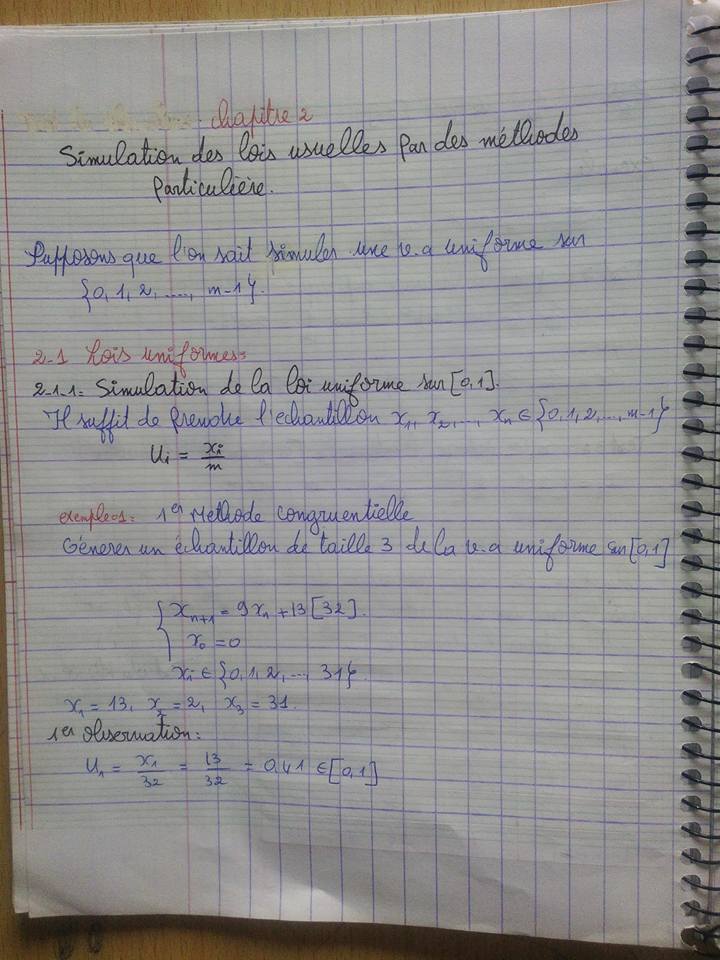 chapitre 2
Simulation des lois usuelles par des méthodes
particulière.
Supposons que l'on sait simuler une v.a uniforme sur
{0, 1, 2, ...., m-1}.
2-1 Lois uniformes:
2-1-1: Simulation de la loi uniforme sur [0,1].
Il suffit de prendre l'echantillon x₁, x₂, ..., xₙ ∈ {0, 1, 2, ..., m-1}
Uᵢ = xᵢ/m
exemple1: 1er Methode congruentielle
Génerer un échantillon de taille 3 de la v.a uniforme sur [0,1]
{ xₙ₊₁ = 9xₙ + 13 [32].
x₀ = 0
xᵢ ∈ {0, 1, 2, ..., 31}.
x₁ = 13, x₂ = 2, x₃ = 31.
1er observation:
U₁ = x₁/32 = 13/32 = 0,41 ∈ [0,1]